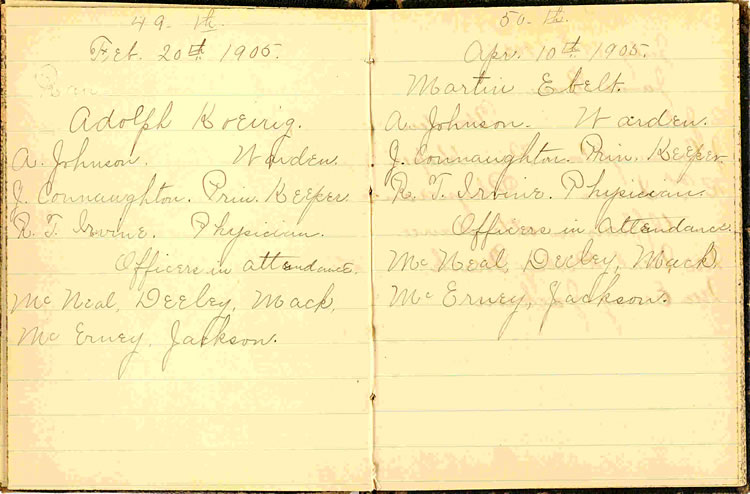 49. th.
Feb. 20th 1905
Adolph Koenig.
A. Johnson. Warden.
J. Connaughton. Prin. Keeper.
R. T. Irvine. Physician.
Officers in attendance.
Mc Neal, Deeley, Mack,
Mc Erney, Jackson.
50. th.
Apr. 10th 1905.
Martin Ebelt.
A. Johnson. Warden.
J. Connaughton. Prin. Keeper.
R. T. Irvine. Physician.
Officers in attendance.
Mc Neal, Deeley, Mack
Mc Erney, Jackson.